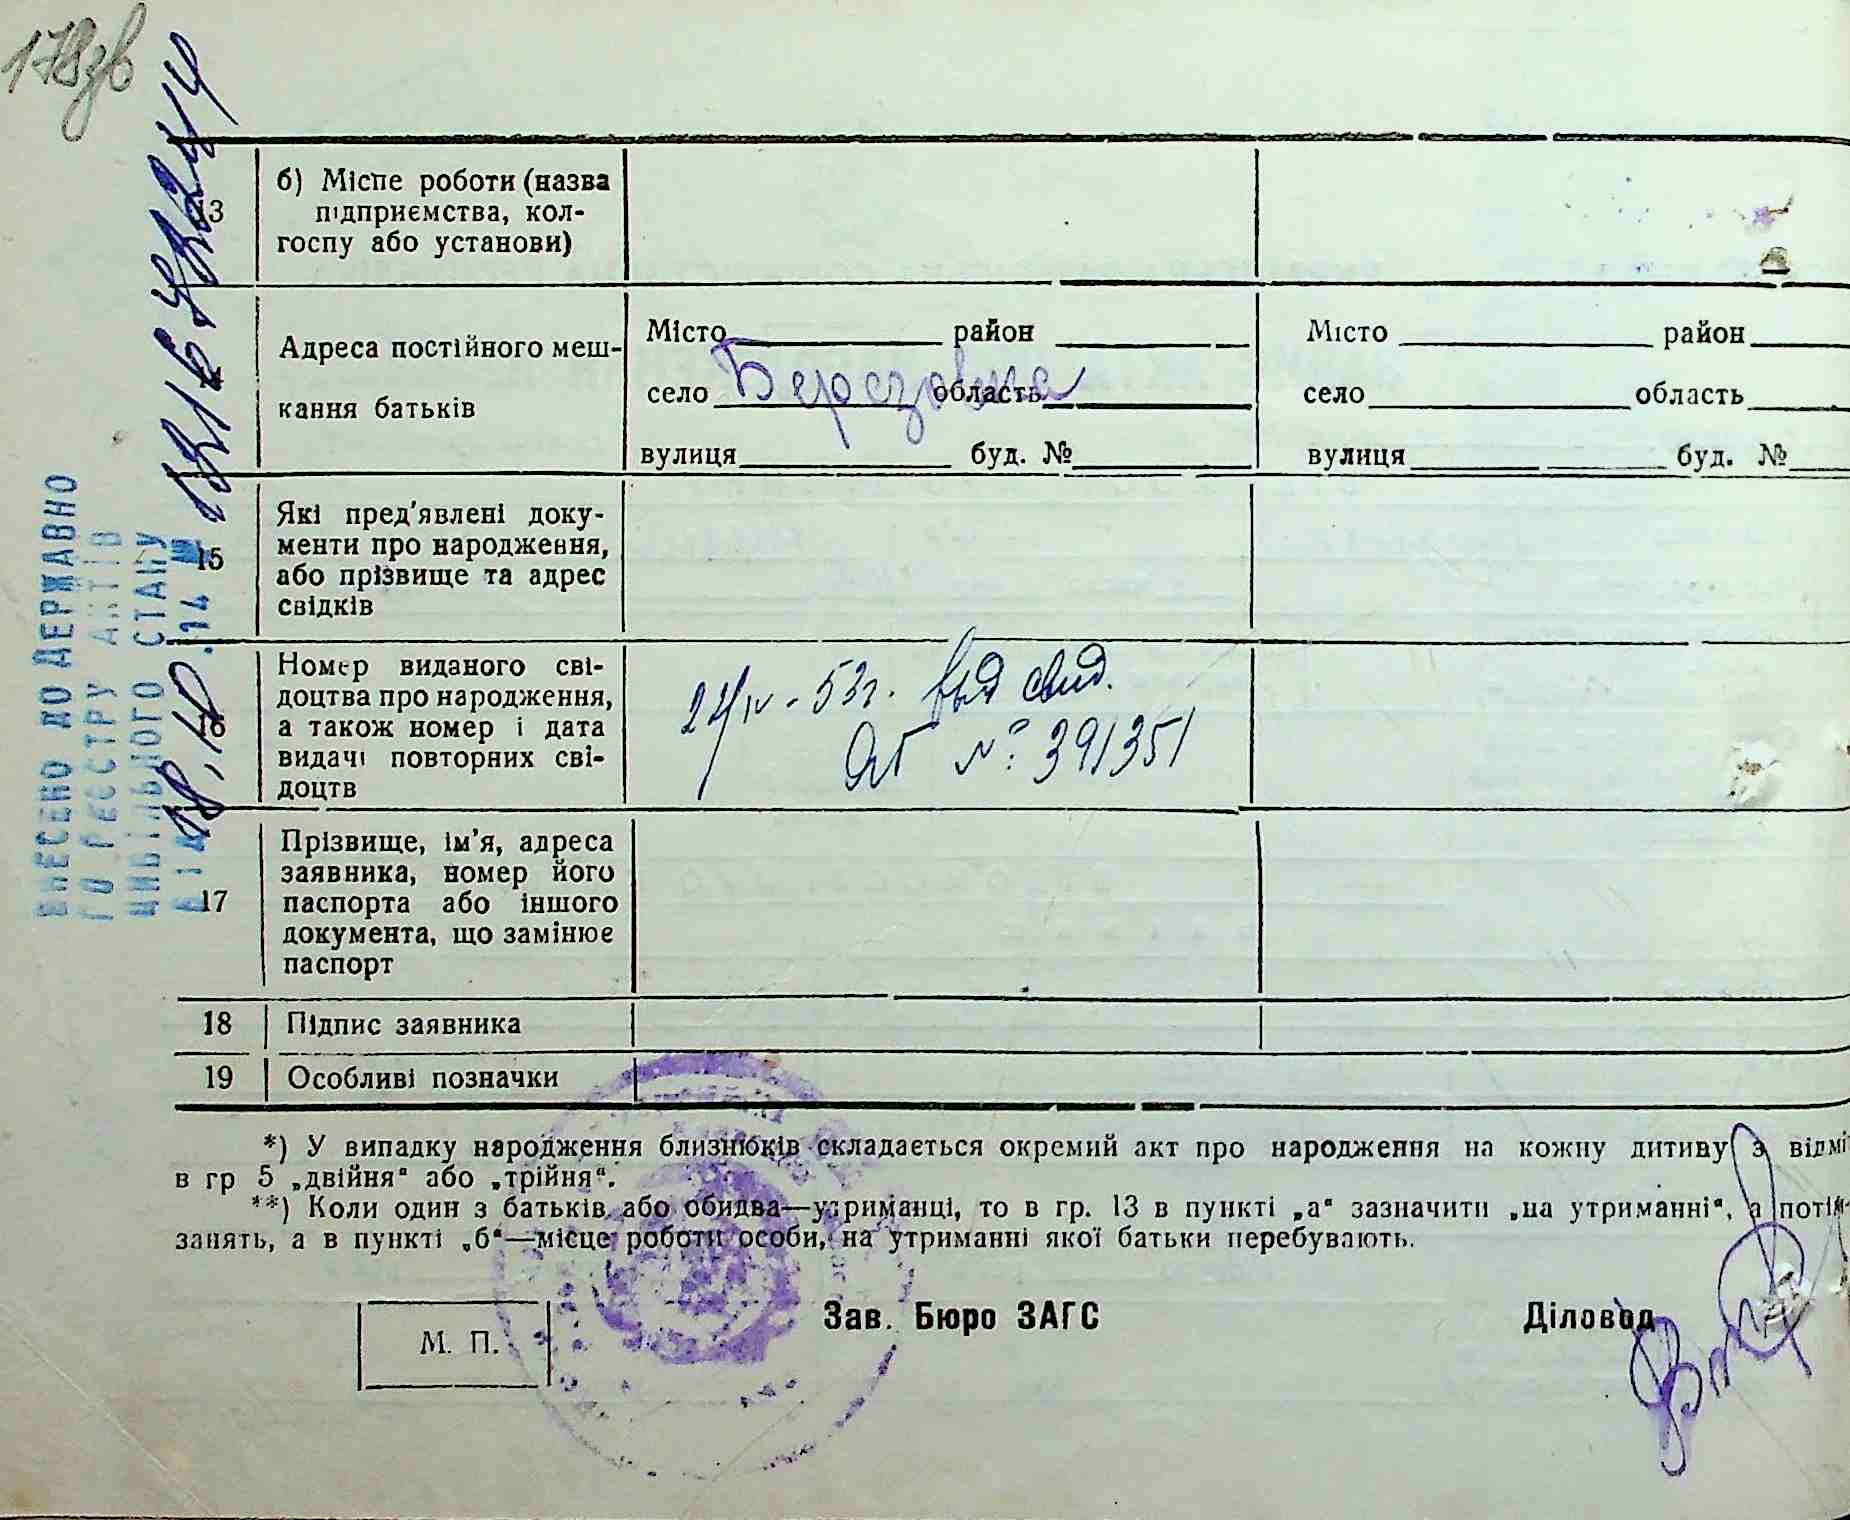 178зв
ВНЕСЕНО ДО ДЕРЖАВНО
ГО РЕЄСТРУ АКТІВ
ЦИВІЛЬНОГО СТАНУ
ВІД 08.10.14 №
13
б) Місце роботи (назва
підприємства, кол-
госпу або установи)
Адреса постійного меш-
кання батьків
Місто район
село Березовка область
вулиця буд. №
Місто район
село область
вулиця буд. №
15
Які пред'явлені доку-
менти про народження,
або прізвище та адрес
свідків
16
Номер виданого сві-
доцтва про народження,
а також номер і дата
видачі повторних сві-
доцтв
24/IV - 53г. выд свид.
№ 391351
17
Прізвище, ім'я, адреса
заявника, номер його
паспорта або іншого
документа, що замінює
паспорт
18 Підпис заявника
19 Особливі позначки
*) У випадку народження близнюків складається окремий акт про народження на кожну дитину з відмі
в гр 5 „двійня“ або „трійня“.
**) Коли один з батьків або обидва—утриманці, то в гр. 13 в пункті „а“ зазначити „на утриманні“, а потім
занять, а в пункті „б“—місце роботи особи, на утриманні якої батьки перебувають.
М. П.
Зав. Бюро ЗАГС
Діловод